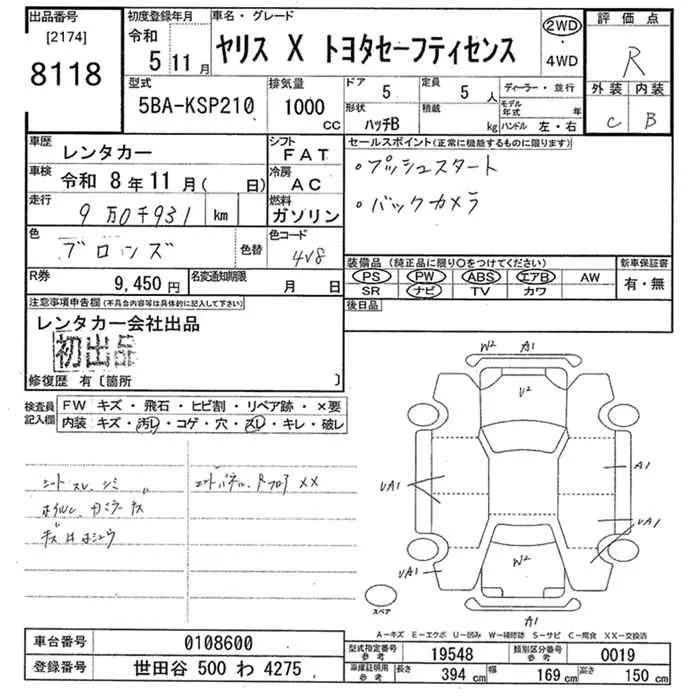 出品番号
[2174]
8118
初度登録年月
令和
5 11月
車名・グレード
ヤリス X トヨタセーフティセンス
2WD
・
4WD
評価点
R
外装 内装
C B
型式
5BA-KSP210
排気量
1000
CC
ドア
5
定員
5 人
形状
ハッチB
積載
kg
ディーラー・並行
モデル年式 年
ハンドル 左・右
車歴
レンタカー
シフト
FAT
車検 令和 8年11月( 日)
冷房
AC
走行 9万0千931 km
燃料
ガソリン
色
ブロンズ
色替
色コード
4V8
R券
9,450円
名変通知期限
月 日
セールスポイント(正常に機能するものに限ります)
・プッシュスタート
・バックカメラ
装備品(純正品に限り○をつけてください)
PS PW ABS エアB AW
SR ナビ TV カワ
新車保証書
有・無
後日品
注意事項申告欄(不具合内容等は具体的に記入して下さい)
レンタカー会社出品
初出品
修復歴 有〔箇所 〕
検査員
記入欄
FW キズ・飛石・ヒビ割・リペア跡・×要
内装 キズ・汚レ・コゲ・穴・スレ・キレ・破レ
シート スレ、シミ
キズ
XX
W2 A1
U2
A1
UA1
UA1
UA1
W2
A1
スペア
A−キズ E−エクボ U−凹み W−補修跡 S−サビ C−腐食 XX−交換済
車台番号 0108600
登録番号 世田谷 500 わ 4275
型式指定番号
参考
19548
類別区分番号
参考
0019
車庫証明用
参考
長さ 394 cm 幅 169 cm 高さ 150 cm